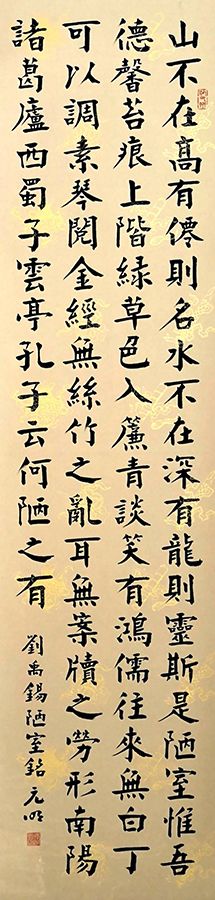 山不在髙有僊則名水不在深有龍則靈斯是陋室惟吾
德馨苔痕上階緑草色入簾青談笑有鴻儒往來無白丁
可以調素琴閱金經無絲竹之亂耳無案牘之勞形南陽
諸葛廬西蜀子雲亭孔子云何陋之有
劉禹錫陋室銘 元明